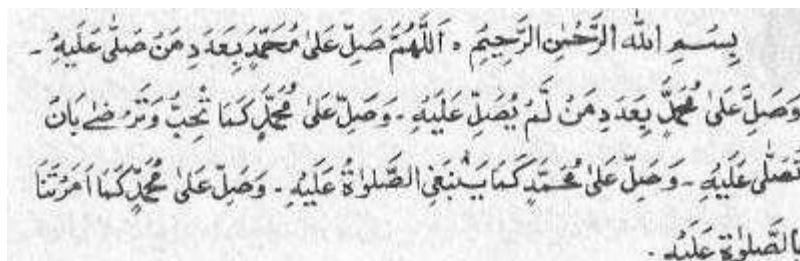 بِسْمِ اللهِ الرَّحْمٰنِ الرَّحِيْمِ ه اَللّٰهُمَّ صَلِّ عَلىٰ مُحَمَّدٍ بِعَدَدِ مَنْ صَلّٰى عَلَيْهِ ۔
وَصَلِّ عَلىٰ مُحَمَّدٍ بِعَدَدِ مَنْ لَّمْ يُصَلِّ عَلَيْهِ ۔ وَصَلِّ عَلىٰ مُحَمَّدٍ كَمَا تُحِبُّ وَتَرْضٰے بَانْ
تُصَلّٰى عَلَيْهِ ۔ وَصَلِّ عَلىٰ مُحَمَّدٍ كَمَا يَنْۢبَغِى الصَّلوٰةُ عَلَيْهِ ۔ وَصَلِّ عَلىٰ مُحَمَّدٍ كَمَا اَمَرْتَنَا
بِالصَّلوٰةِ عَلَيْهِ ۔